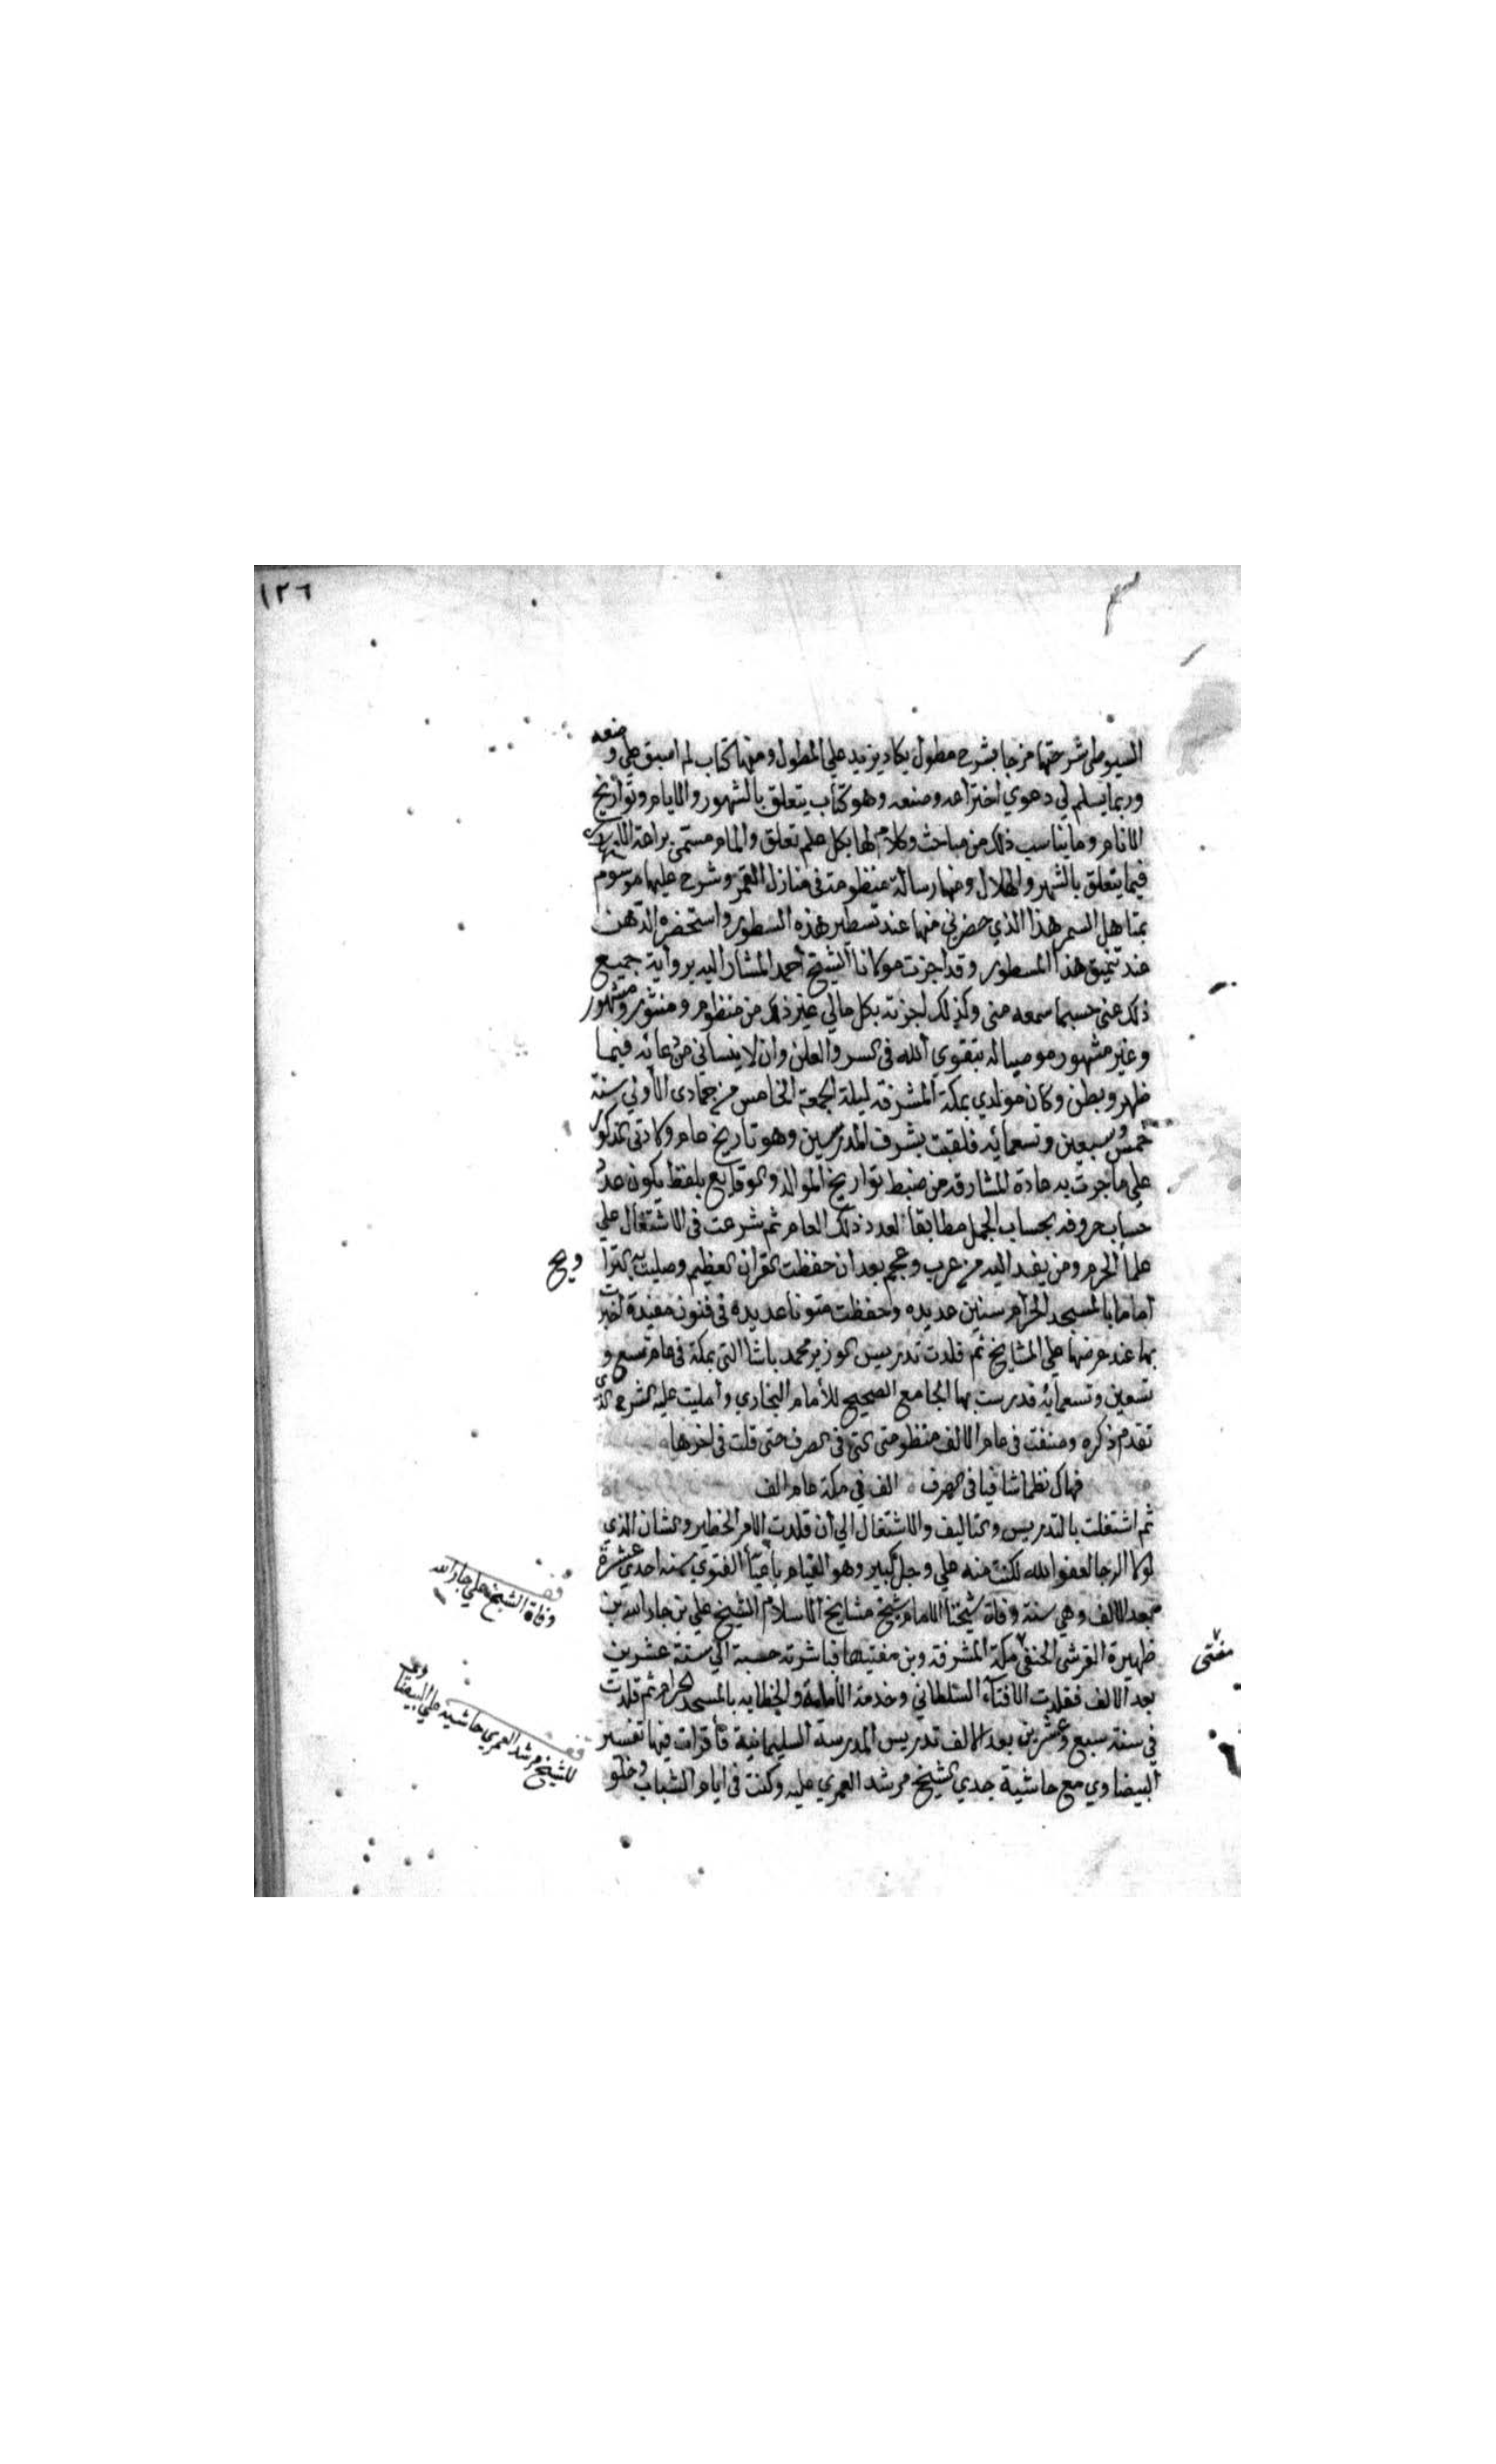 ١٢٦
السيوطي شرحتها مزجا بشرح مطول يكاد يزيد علي المطول ومنها كتاب لم اسبق علي وضعه
وربما يسلم لي دعوي اختراعه وصنعه وهو كتاب يتعلق بالشهور والايام وتواريخ
الانام وما يناسب ذلك من مباحث وكلام لها بكل علم تعلق والمام مسمى براعة الاستهلال
فيما يتعلق بالشهر والهلال ومنها رسالة منظومة في منازل القمر وشرح عليها موسوم
بمناهل السمر هذا الذي حضرني منها عند تسطير هذه السطور واستحضره الذهن
عند تنميق هذا المسطور وقد اجزت مولانا الشيخ احمد المشار اليه برواية جميع
ذلك عني حسبما سمعه مني وكذلك اجزته بكل مالي غير ذلك من منظوم ومنثور ومشهور
وغير مشهور موصيا له بتقوي الله في السر والعلن وان لا ينساني من دعائه فيما
ظهر وبطن وكان مولدي بمكة المشرفة ليلة الجمعة الخامس من جمادى الأولي سنة
خمس وسبعين وتسعمائه فلقبت بشرف المدرسين وهو تاريخ عام ولادتي المذكور
علي ما جرت به عادة المشارقة من ضبط تواريخ المواليد والوقايع بلفظ يكون عدد
حساب حروفه بحساب الجمل مطابقا لعدد ذلك العام ثم شرعت في الاشتغال علي
علماء الحرم ومن يفد اليه من عرب وعجم بعد ان حفظت القران العظيم وصليت به الترا
ويح
اماما بالمسجد الحرام سنين عديده وحفظت متونا عديده في فنون مفيدة اخبرت
بها عند عرضها علي المشايخ ثم قلدت تدريس الوزير محمد باشا التى بمكة في عام تسع و
تسعين وتسعمائه فدرست بها الجامع الصحيح للأمام البخاري وأمليت عليه الشرح الذي
تقدم ذكره وصنفت في عام الالف منظومتى التى في الصرف حتى قلت في اخرها
فهاك نظما شافيا في الصرف الف في مكة عام الف
ثم اشتغلت بالتدريس والتاليف والاشتغال الي أن قلدت الامر الخطير والشان الذي
لولا الرجا لعفو الله لكنت منه علي وجل كبير وهو القيام بأعبأ الفتوي سنه احدي عشرة
بعد الالف وهي سنة وفاة شيخنا الامام شيخ مشايخ الاسلام الشيخ علي بن جار الله بن
ظهيرة القرشي الحنفي مكة المشرفة وبن مفتيها فباشرته حسبة الي سنة عشرين
مفتى
بعد الالف فقلدت الافتاء السلطاني وخدمة الأمامة والخطابه بالمسجد الحرام ثم قلدت
في سنة سبع وعشرين بعد الالف تدريس المدرسة السليمانية فأقرات فيها تفسير
البيضاوي مع حاشية جدي الشيخ مرشد العمري عليه وكنت في ايام الشباب وخلو
قف
وفاة الشيخ علي جار الله
قف
للشيخ مرشد العمري حاشيه علي البيضاوي